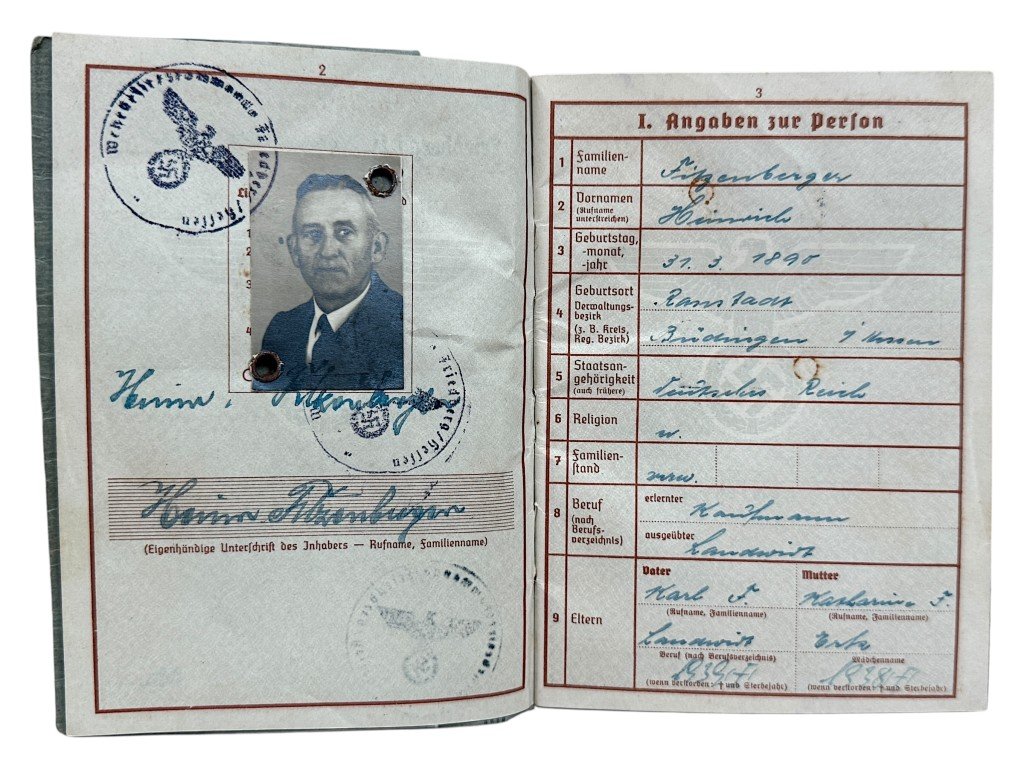 2
Wehrbezirkskommando Friedberg/Hessen
Heinr. Fitzenberger
Friedberg/Hessen
Heinr Fitzenberger
(Eigenhändige Unterschrift des Inhabers — Rufname, Familienname)
3
I. Angaben zur Person
1 Familien-name Fitzenberger
2 Vornamen (Rufname unterstreichen) Heinrich
3 Geburtstag, -monat, -jahr 31. 3. 1890
4 Geburtsort Verwaltungs-bezirk (z. B. Kreis, Reg. Bezirk) Ranstadt
Büdingen i/Hessen
5 Staatsan-gehörigkeit (auch frühere) Deutsches Reich
6 Religion
7 Familien-stand verw.
8 Beruf (nach Berufs-verzeichnis) erlernter Kaufmann
ausgeübter Landwirt
9 Eltern
Vater Mutter
Karl F. Katharina F.
(Rufname, Familienname) (Rufname, Familienname)
Landwirt
Beruf (nach Berufsverzeichnis) Mädchenname
(wenn verstorben: † und Sterbejahr) (wenn verstorben: † und Sterbejahr)